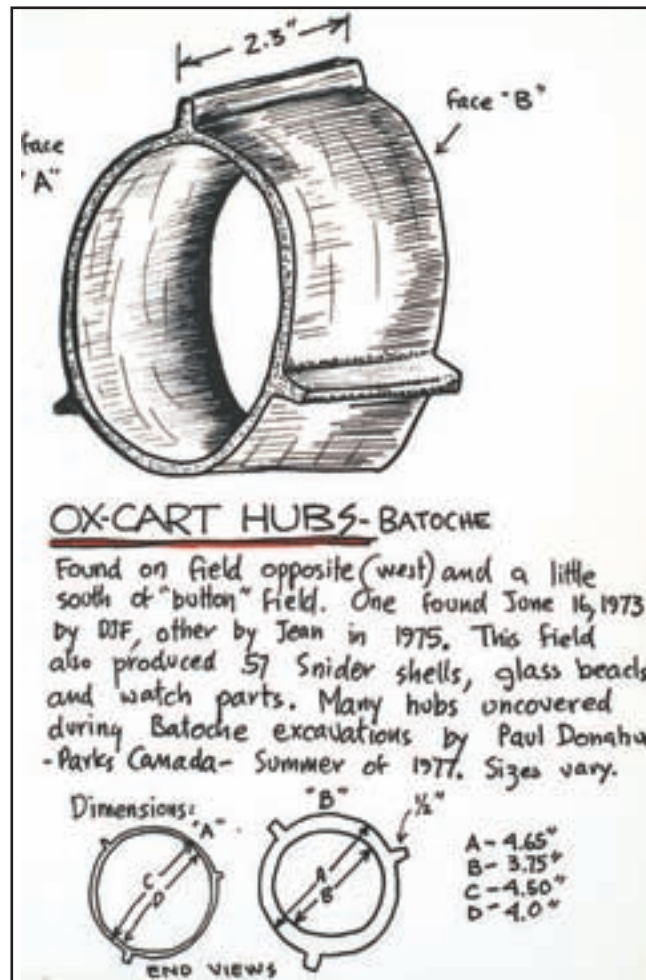 2.3"
face "B"
face
"A"
OX-CART HUBS - BATOCHE
Found on field opposite (west) and a little
south of "button" field. One found June 16, 1973
by DJF, other by Jean in 1975. This field
also produced 57 Snider shells, glass beads
and watch parts. Many hubs uncovered
during Batoche excavations by Paul Donahu
-Parks Canada- Summer of 1977. Sizes vary.
Dimensions:
"A"
"B"
1/2"
C
D
A
B
A - 4.65"
B - 3.75"
C - 4.50"
D - 4.0"
END VIEWS